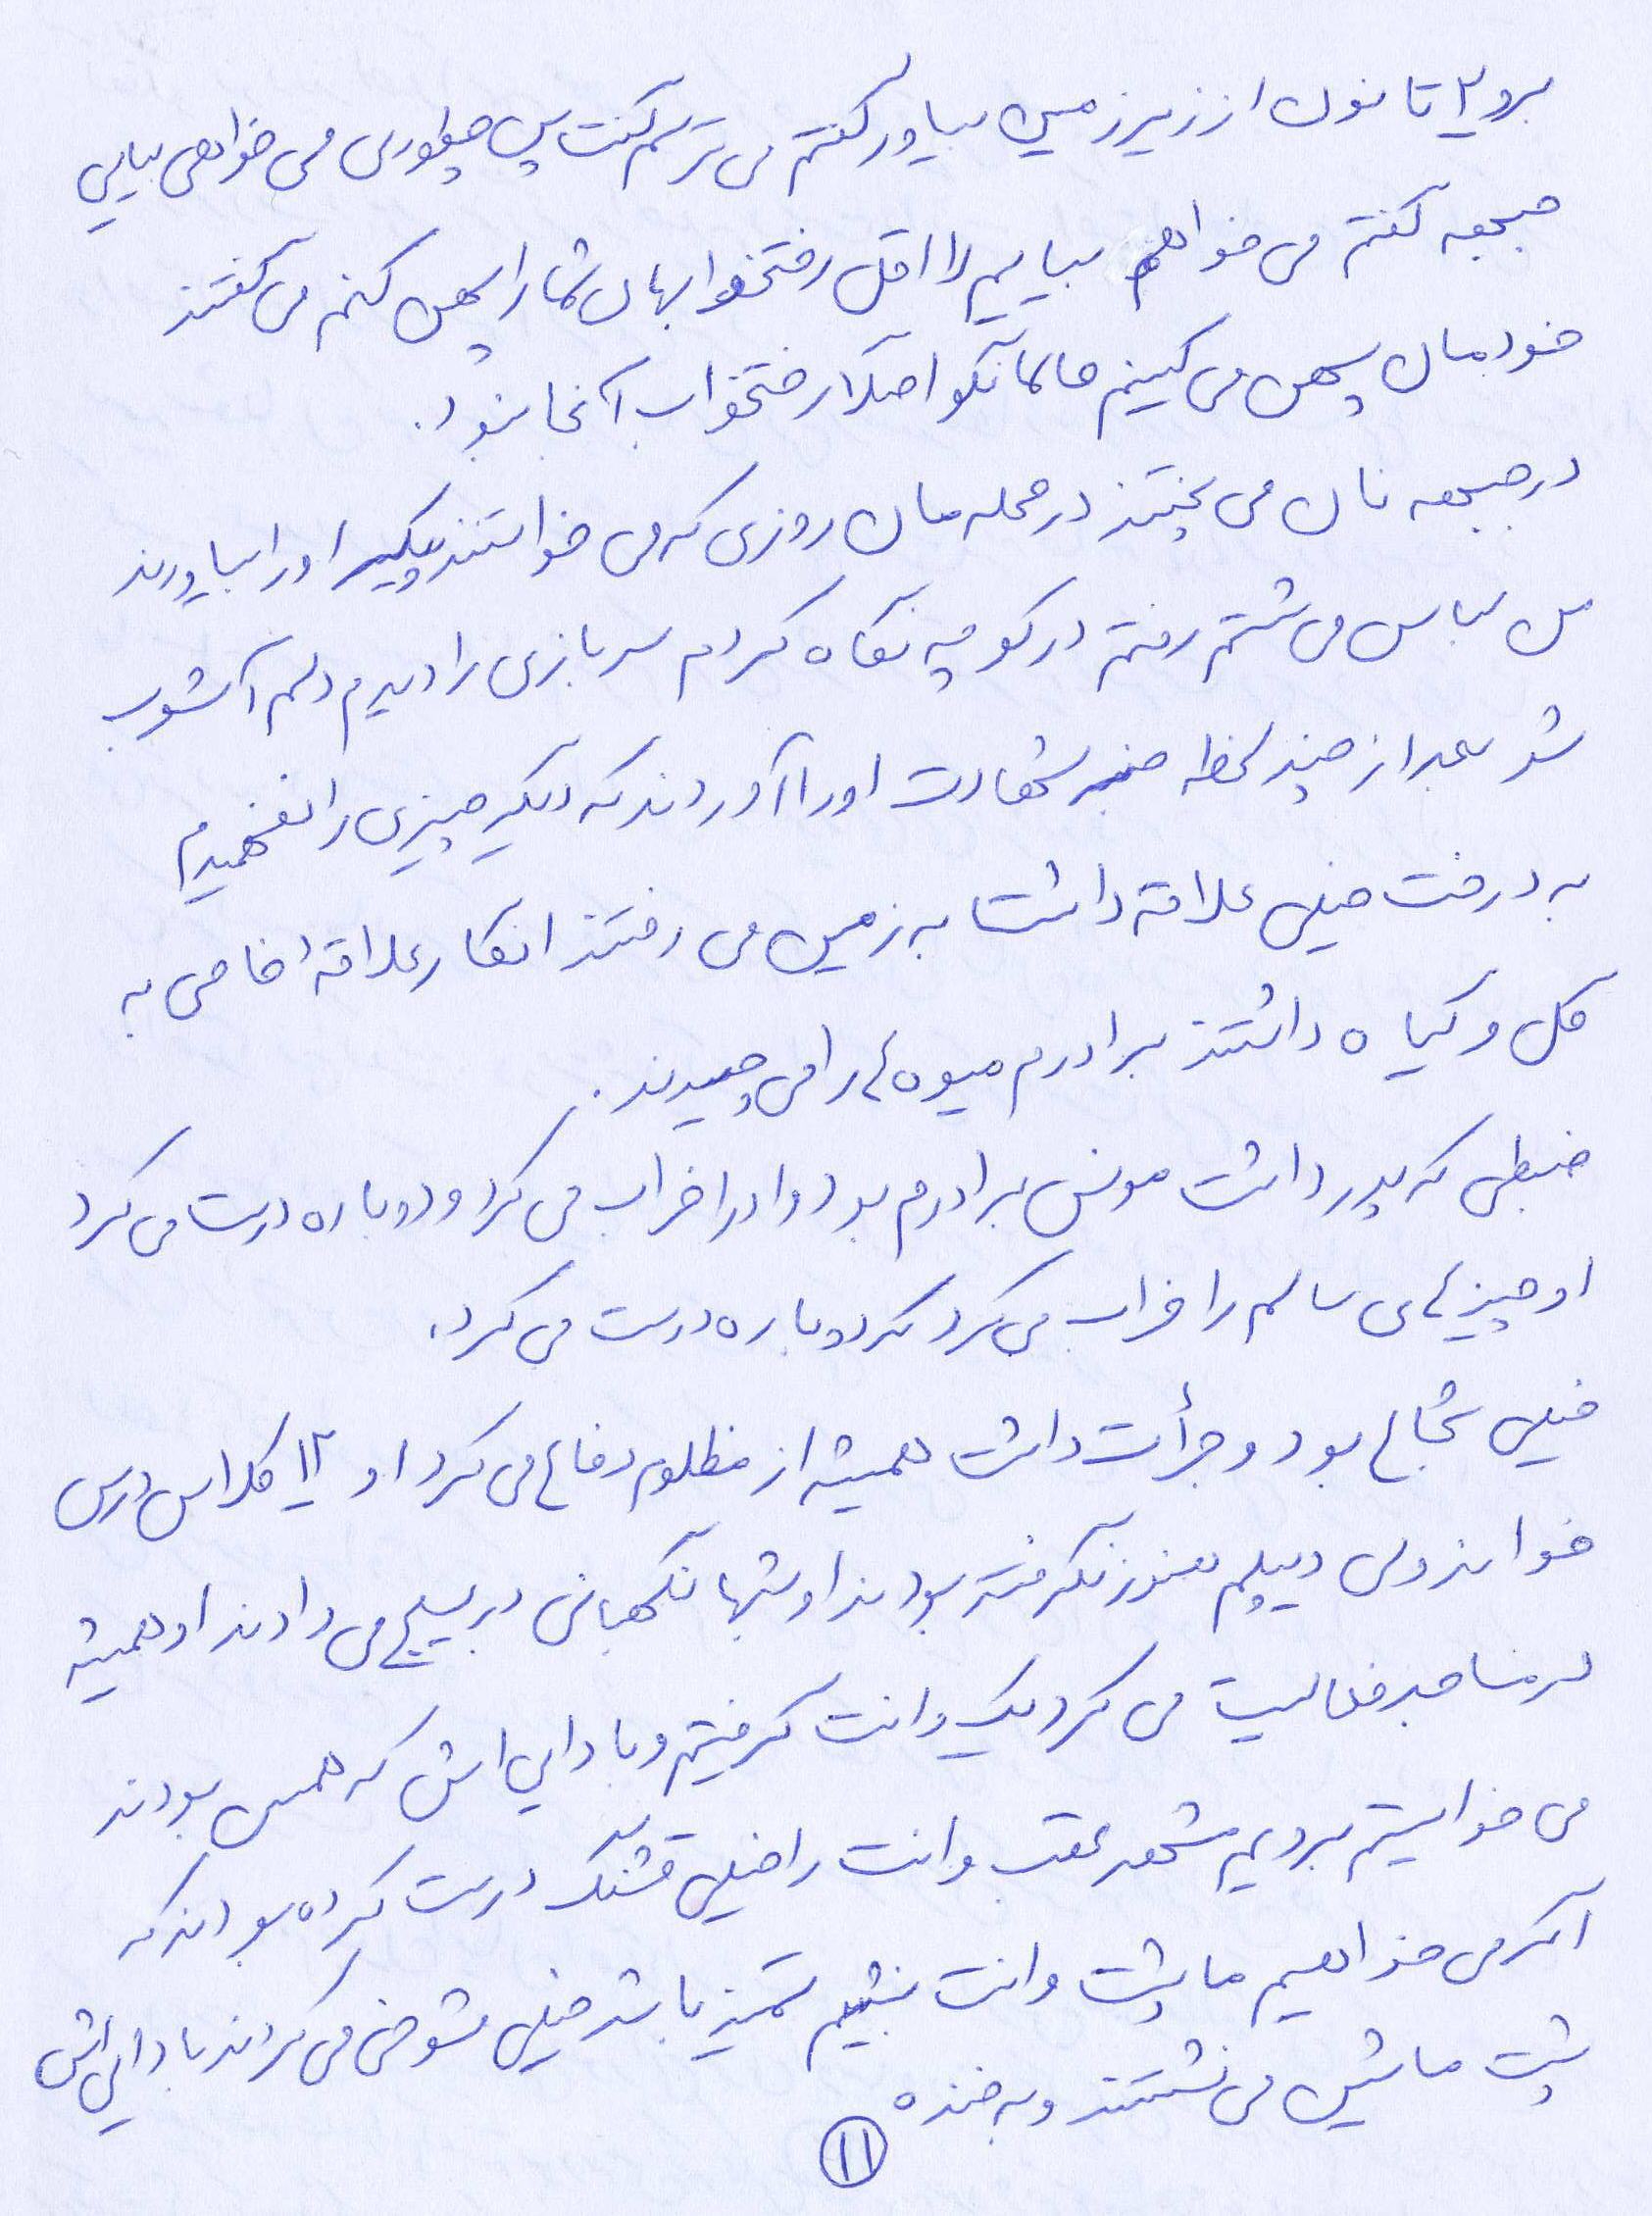 برو ۲ تا نون از زیرزمین بیاور گفتم می ترسم گفت پس چطوری می خواهی بیایی
جبهه گفتم می خواهم بیایم لااقل رختخوابهای شما را پهن کنم می گفتند
خودمان پهن می کنیم حالا نگو اصلاً رختخواب آنجا نبود.
در جبهه نان می پختند در محله مان روزی که می خواستند پیکر او را بیاورند
من لباس می شستم رفتم در کوچه نگاه کردم سربازی را دیدم دلم آشوب
شد بعد از چند لحظه خبر شهادت او را آوردند که دیگر چیزی را نفهمیدم
به درخت خیلی علاقه داشت به زمین می رفتند انگار علاقه خاصی به
گل و گیاه داشتند برادرم میوه ها را می چیدند.
ضبطی که پدر داشت مونس برادرم بود و او را خراب می کرد و دوباره درست می کرد
او چیزهای سالم را خراب می کرد که دوباره درست می کرد.
خیلی شجاع بود و جرأت داشت همیشه از مظلوم دفاع می کرد او ۱۲ کلاس درس
خواند ولی دیپلم هنوز نگرفته بودند او شبها نگهبانی در بسیج می دادند او همیشه
در مساجد فعالیت می کرد یک وانت گرفتیم و با دایی اش که همسن بودند
می خواستیم برویم مشهد عقب وانت را خیلی قشنگ درست کرده بودند که
اگر می خواهیم ما پشت وانت بنشیم تمیز باشد خیلی شوخی می کردند با دایی اش
پشت ماشین می نشستند و به خنده
۱۱